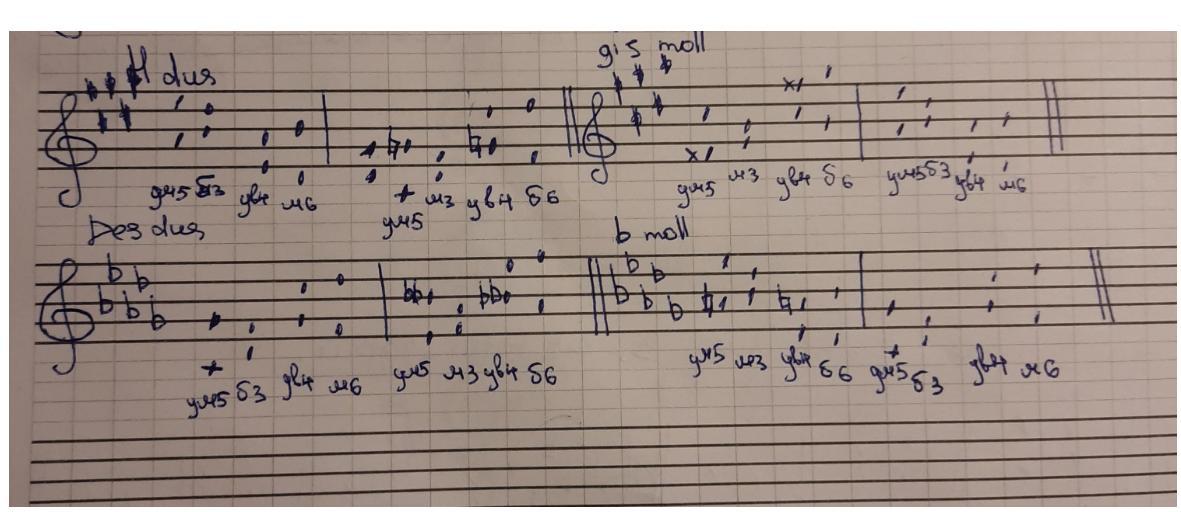 H dur
gis moll
ум5 б3 ув4 м6 ум5 м3 ув4 б6 ум5 м3 ув4 б6 ум5 б3 ув4 м6
Des dur
b moll
ум5 б3 ув4 м6 ум5 м3 ув4 б6 ум5 м3 ув4 б6 ум5 б3 ув4 м6